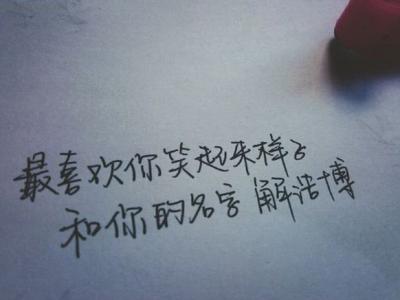 最喜欢你笑起来样子
和你的名字解浩博